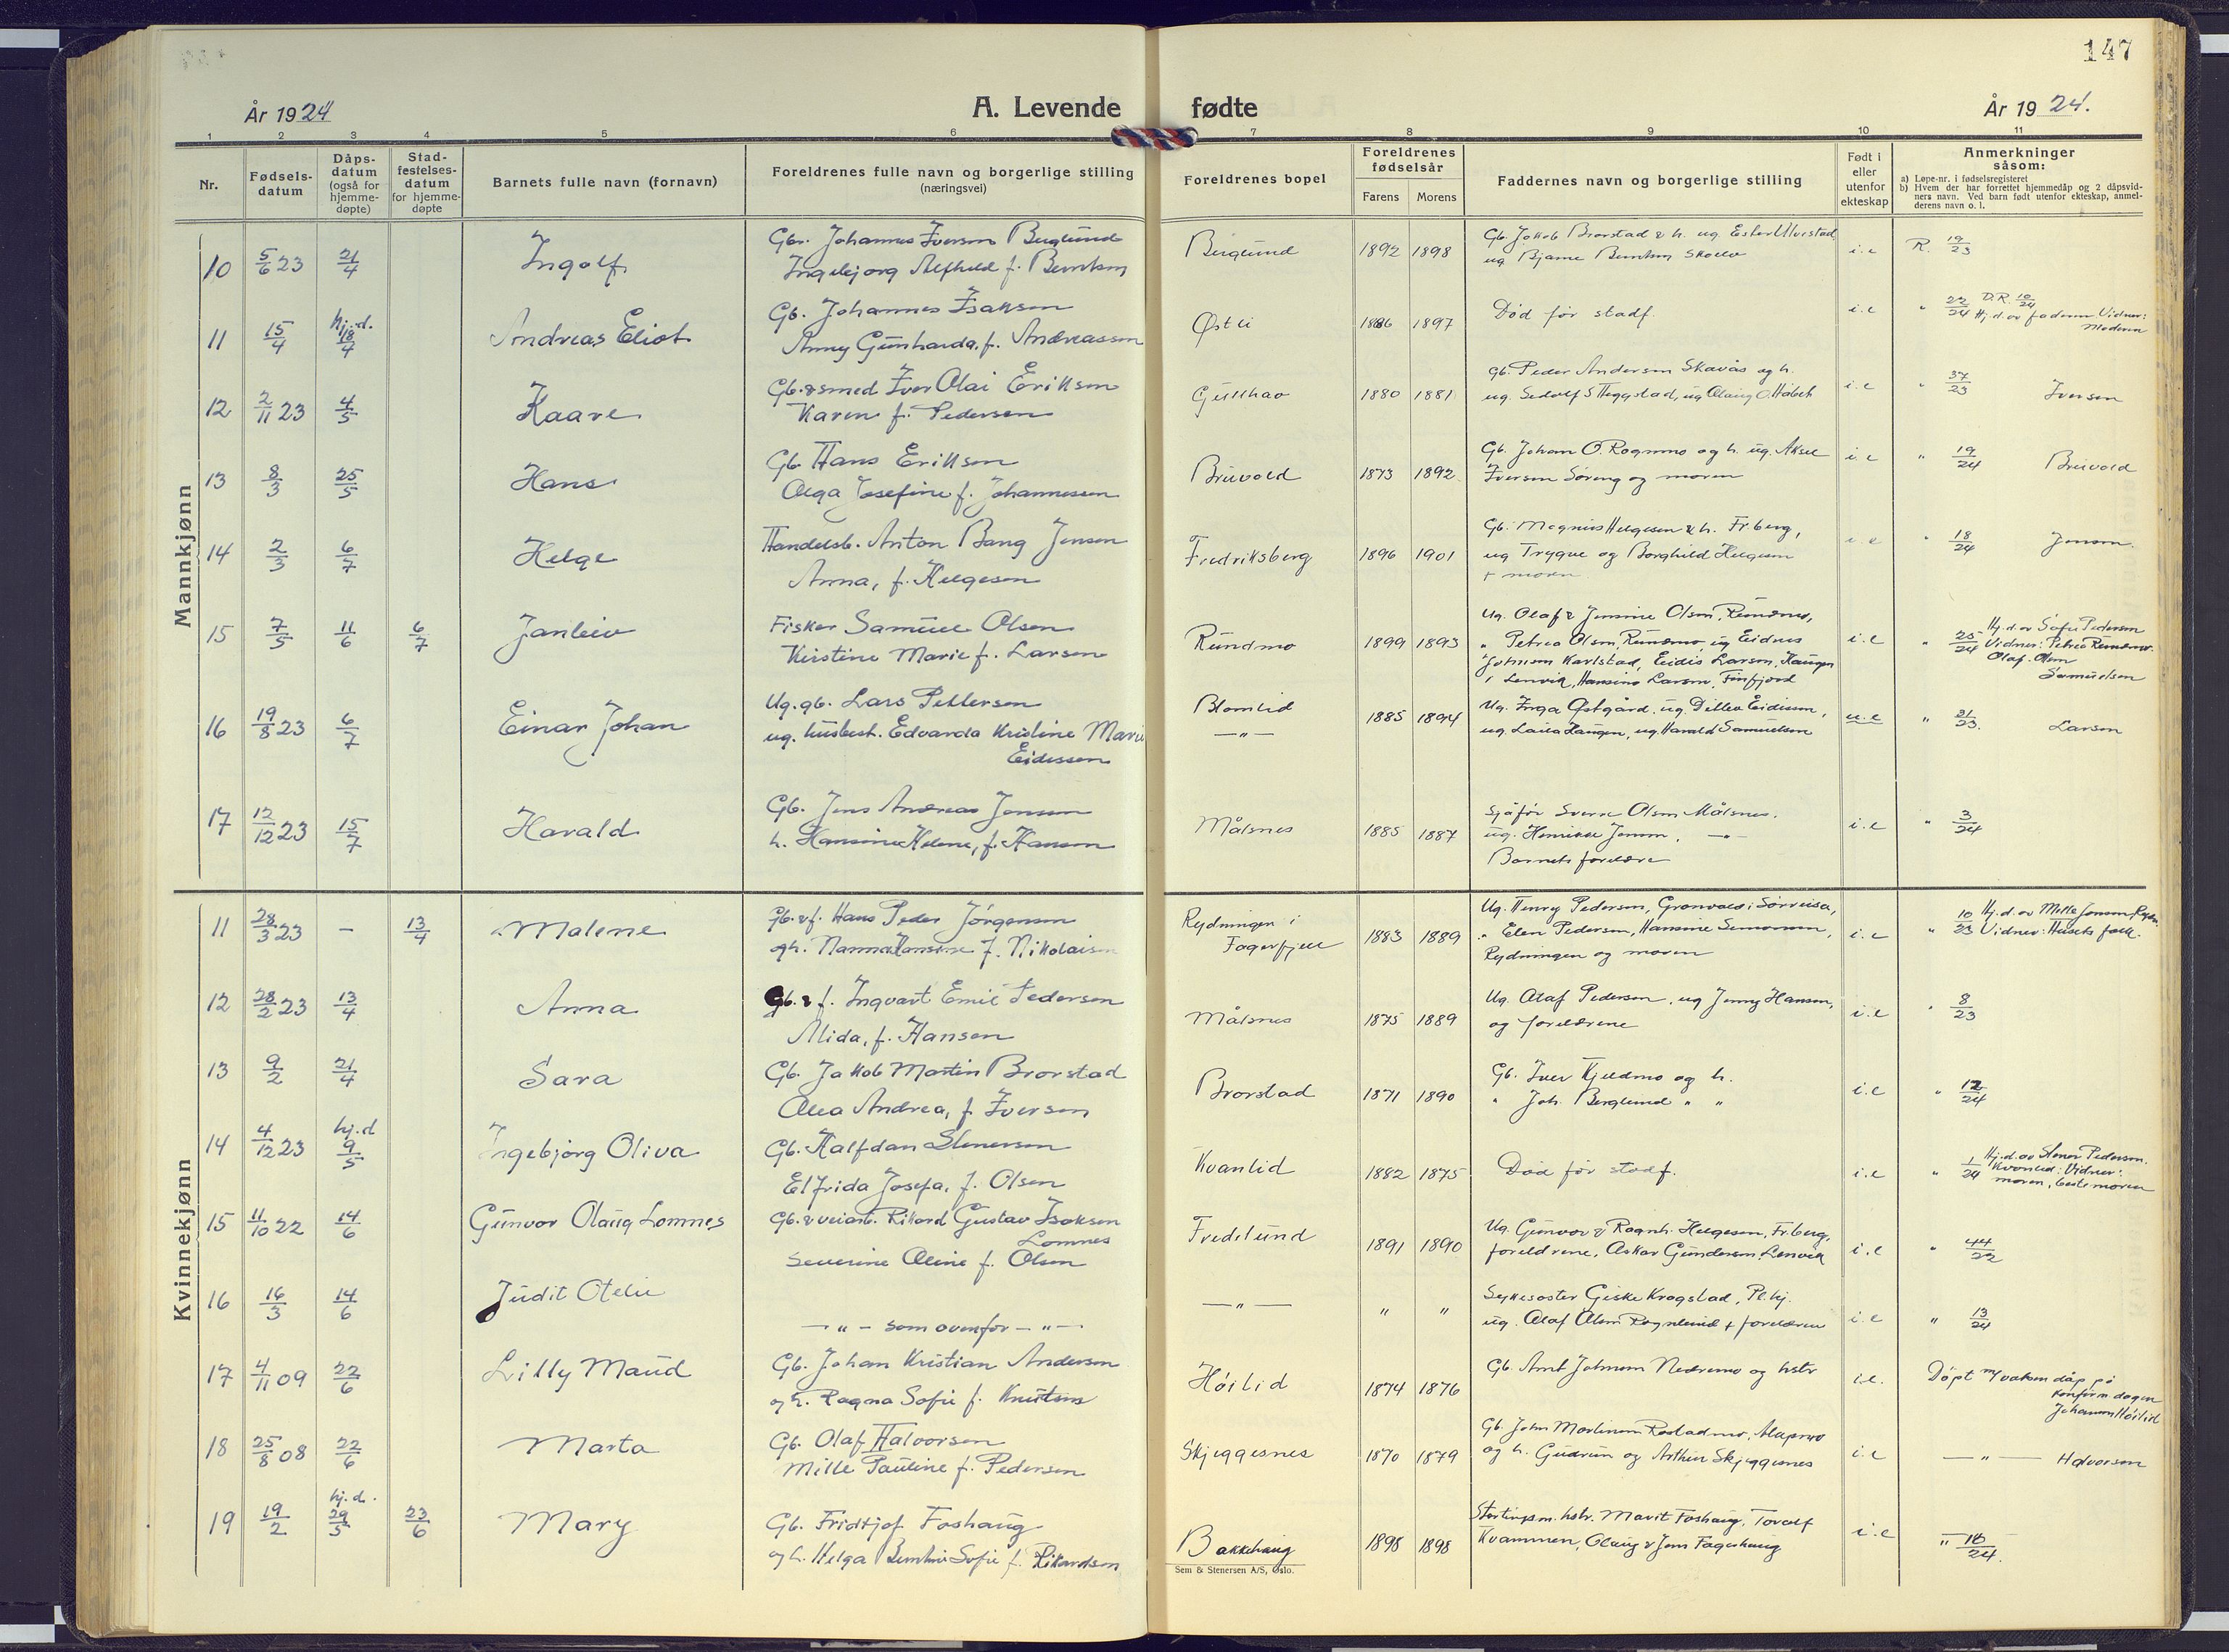 147
År 1924
A. Levende fødte
År 1924.
1 2 3 4 5 6 7 8 9 10 11
Nr.
Fødsels-
datum
Dåps-
datum
(også for
hjemme-
døpte)
Stad-
festelses-
datum
for hjemme-
døpte
Barnets fulle navn (fornavn)
Foreldrenes fulle navn og borgerlige stilling
(næringsvei)
Foreldrenes bopel
Foreldrenes
fødselsår
Farens Morens
Faddernes navn og borgerlige stilling
Født i
eller
utenfor
ekteskap
Anmerkninger
såsom:
a) Løpe-nr. i fødselsregisteret
b) Hvem der har forrettet hjemmedåp og 2 dåpsvid-
ners navn. Ved barn født utenfor ekteskap, anmel-
derens navn o. l.
Mannkjønn
10 5/6 23 21/4 Ingolf
Gbr. Johannes Iversen Berglund
Ingebjorg Alfhild f. Berntsen
Berglund 1892 1898
Gb. Jakob Brorstad & h. ug. Ester Ulvestad
ug. Bjarne Berntsen
i.e R. 19/23
11 15/4 hj.d. 18/4 Andreas Eliot
Gb. Johannes Isaksen
Anny Gunharda, f. Andreassen
Østli 1886 1897
Død før stadf.
i.e " 22/24 D.R. 10/24
Hj.d. av faderen Vidner:
Moderen
12 2/11 23 4/5 Kaare
Gb. & smed Iver Olai Eriksen
Karen f. Pedersen
Gullhav 1880 1881
Gb. Peder Andersen Skavås og h.
ug. Sedolf S Heggstad, ug Olaug O.
i.e " 37/23 Iversen
13 8/3 25/5 Hans
Gb Hans Eriksen
Olga Josefine f. Johannessen
Bruvold 1873 1892
Gb. Johan O. Rognmo og h. ug. Aksel
Iversen Søreng og moren
i.e " 19/24 Bruvold
14 2/3 6/7 Helge
Handelsb. Anton Bang Jensen
Anna, f. Helgesen
Fredriksberg 1896 1901
Gb. Magnus Helgesen & h. Fr.berg,
ug Trygve og Borghild Helgesen
+ moren
i.e " 18/24 Jensen.
15 7/5 11/6 6/7 Janleiv
Fisker Samuel Olsen
Kirstine Marie f. Larsen
Rundmo 1899 1893
Ug. Olaf & Jensine Olsen, Rundmo,
" Petrea Olsen, Rundmo, ug Eidnes
Johnsen Karlstad, Eidis Larsen, Haugen
i Lenvik, Hansine Larsen, Finfjord
i.e " 25/24 Hj.d. av Sofie Pedersen
Vidner: Petrea Rundmo.
Olaf Olsen
Samuelsen
16 19/8 23 6/7 Einar Johan
Ug. gb. Lars Pettersen
ug. husbest. Edvarda Kristine Marie
Eidissen
Blomlid
— " — 1885 1894
Ug. Inga Østgård, ug. Ditlev Eidissen,
ug. Laila Haugen, ug. Harald Samuelsen
u.e " 21/23. Larsen
17 12/12 23 15/7 Harald
Gb. Jens Andreas Jensen
h. Hansine Helene, f. Hansen
Målsnes 1885 1887
Sjåfør Sverre Olsen Målsnes.
ug. Henrikke Jensen, — " —
Barnets foreldre
i.e " 3/24
Kvinnekjønn
11 28/3 23 – 13/4 Malene
Gb. & f. Hans Peder Jørgensen
og h. Nanna Hansine f. Nikolaisen
Rydningen i
Fagerfjell 1883 1889
Ug. Henry Pedersen, Grønvold i Sørreisa,
" Elen Pedersen, Hansine Simonsen,
Rydningen og moren
i.e " 10/23 Hj.d. av Mette Jensen,
Vidner: Husets folk.
12 28/2 23 13/4 Anna
Gb. & f. Ingvart Emil Pedersen
Alida, f. Hansen
Målsnes 1875 1889
Ug. Olaf Pedersen, ug Jenny Hansen,
og foreldrene
i.e " 8/23
13 9/2 21/4 Sara
Gb. Jakob Martin Brorstad
Olea Andrea, f Iversen
Brorstad 1871 1890
Gb. Iver Kjeldmo og h.
" Joh. Berglund " "
i.e " 12/24
14 4/12 23 hj.d 9/5 Ingebjørg Oliva
Gb. Halfdan Stenersen
Elfrida Josefa, f. Olsen
Kvanlid 1882 1875
Død før stadf.
i.e " 1/24 Hj.d. av Stener Pedersen.
Kvanlid: Vidner:
moren, bestemoren
15 11/10 22 14/6 Gunvor Olaug Lomnes
Gb. & veiarb. Rikard Gustav Isaksen
Lomnes
Severine Oline f. Olsen
Fredelund 1891 1890
Ug. Gunvor & Ragnh. Helgesen, Fr.berg,
foreldrene, Oskar Gundersen, Lenvik
i.e " 44/22
16 16/3 14/6 Judit Otelie
— " – som ovenfor – " —
— " — " "
Sykesøster Giske Krogstad, Pl.hj.
ug. Olaf Olsen Rognlund + foreldrene
i.e " 13/24
17 4/11 09 22/6 Lilly Maud
Gb. Johan Kristian Andersen
og h. Ragna Sofie f. Knutsen
Høilid 1874 1876
Gb. Arnt Johnsen Nedremo og hstr
i.e. Døpt m/ voksen dåp på
konfirm.dagen
Johansen Høilid
18 25/8 08 22/6 Marta
Gb. Olaf Halvorsen
Mille Pauline f. Pedersen
Skjeggesnes 1870 1879
Gb. John Martinsen Rostadmo,
og h. Gudrun og Arthur Skjeggesnes
i.e — " — Halvorsen
19 19/2 hj.d. 29/5 23/6 Mary
Gb. Fridtjof Foshaug
og h. Helga Bernhine Sofie f. Rikardsen
Bakkehaug 1898 1898
Stortingsm. hstr. Marit Foshaug, Toralf
Kvammen, Olaug & Jens Fagerhaug
i.e " 16/24.
Sem & Stenersen A/S, Oslo.